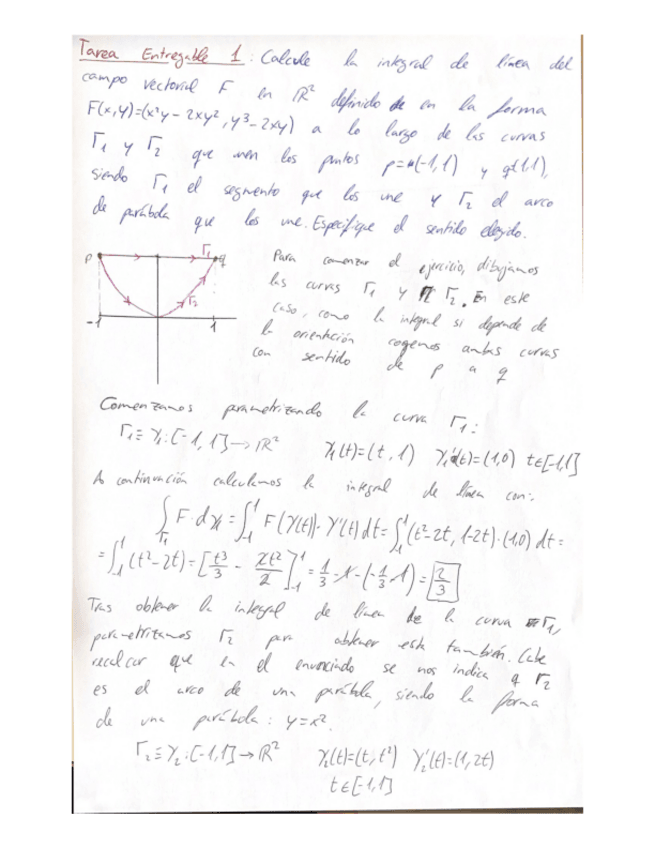 Tarea Entregable 1: Calcule la integral de línea del
campo vectorial F en R² definido en la forma
F(x,y)=(x²y - 2xy², y³ - 2xy) a lo largo de las curvas
Γ₁ y Γ₂ que unen los puntos p=(-1,1) y q(1,1),
siendo Γ₁ el segmento que los une y Γ₂ el arco
de parábola que los une. Especifique el sentido elegido.
p Γ₁ q
Γ₂
-1 1
Para comenzar el ejercicio, dibujamos
las curvas Γ₁ y Γ₂. En este
caso, como la integral si depende de
la orientación cogemos ambas curvas
con sentido de p a q
Comenzamos parametrizando la curva Γ₁:
Γ₁ ≡ γ₁:[-1,1] → R² γ₁(t)=(t,1) γ₁'(t)=(1,0) t∈[-1,1]
A continuación calculamos la integral de línea con:
∫_Γ₁ F·dγ₁ = ∫₋₁¹ F(γ(t))·γ'(t) dt = ∫₋₁¹ (t²-2t, 1-2t)·(1,0) dt =
= ∫₋₁¹ (t²-2t) = [t³/3 - 2t²/2]₋₁¹ = 1/3 - 1 - (-1/3 - 1) = 2/3
Tras obtener la integral de línea de la curva Γ₁,
parametrizamos Γ₂ para obtener esta también. Cabe
recalcar que en el enunciado se nos indica q Γ₂
es el arco de una parábola, siendo la forma
de una parábola: y=x².
Γ₂ ≡ γ₂:[-1,1] → R² γ₂(t)=(t,t²) γ₂'(t)=(1,2t)
t∈[-1,1]